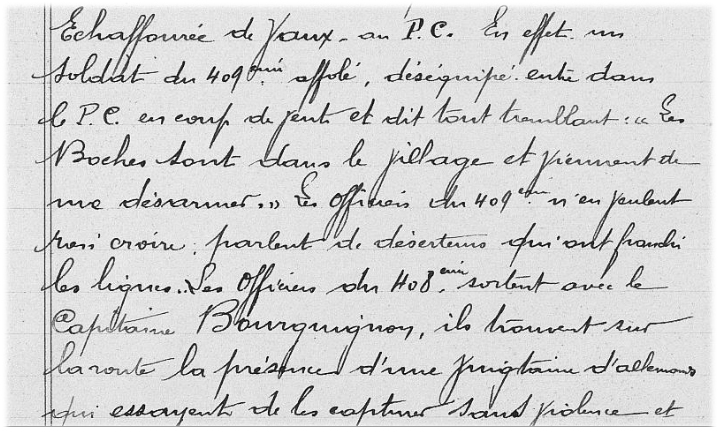 Echaffourée de Vaux - au P.C. En effet un
soldat du 409ème affolé, déséquipé entre dans
le P.C. en coup de vent et dit tout tremblant : « Les
Boches sont dans le village et viennent de
me désarmer. » Les Officiers du 409ème n'en veulent
rien croire, parlent de déserteurs qui ont franchi
les lignes. Les Officiers du 408ème sortent avec le
Capitaine Bourguignon, ils trouvent sur
la route la présence d'une vingtaine d'allemands
qui essayent de les capturer sans violence et